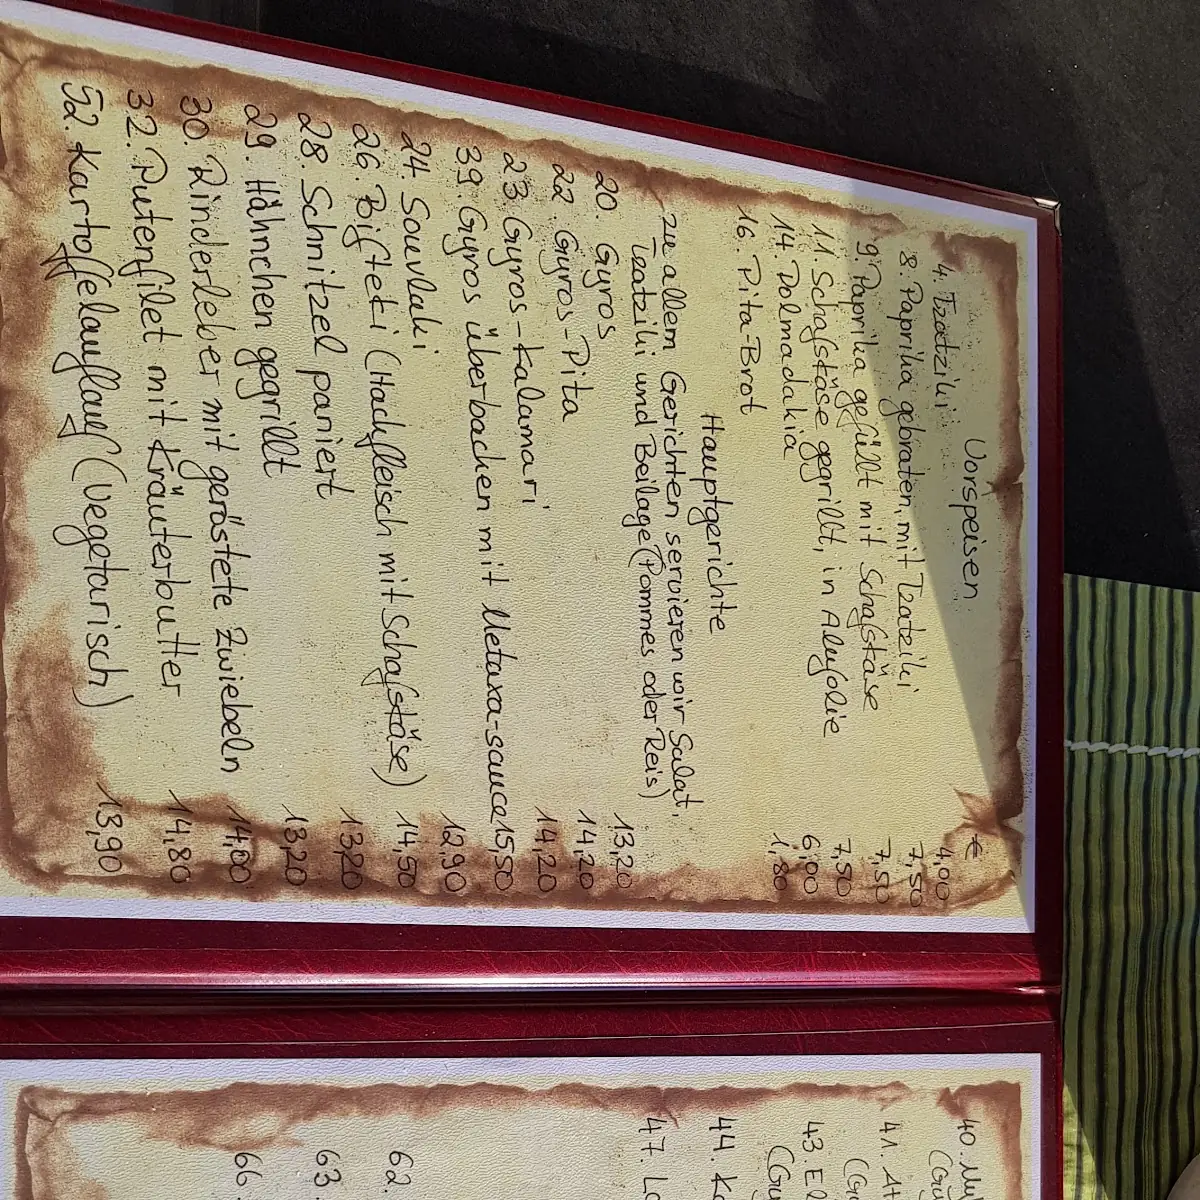 Vorspeisen €
4. Tzatziki 4,00
8. Paprika gebraten, mit Tzatziki 7,50
9. Paprika gefüllt mit Schafskäse 7,50
11. Schafskäse gegrillt, in Alufolie 7,50
14. Dolmadakia 6,00
16. Pita-Brot 1,80
Hauptgerichte
Zu allem Gerichten servieren wir Salat,
Tzatziki und Beilage (Pommes oder Reis)
20. Gyros 13,20
22. Gyros-Pita 14,20
23. Gyros-Kalamari 14,20
39. Gyros überbacken mit Metaxa-sauce 15,50
24. Souvlaki 12,90
26. Bifteki (Hackfleisch mit Schafskäse) 14,50
28. Schnitzel paniert 13,20
29. Hähnchen gegrillt 13,20
30. Rinderleber mit geröstete Zwiebeln 14,00
32. Putenfilet mit Kräuterbutter 14,80
52. Kartoffelauflauf (Vegetarisch) 13,90
40.
41.
43.
44.
47.
62.
63.
66.